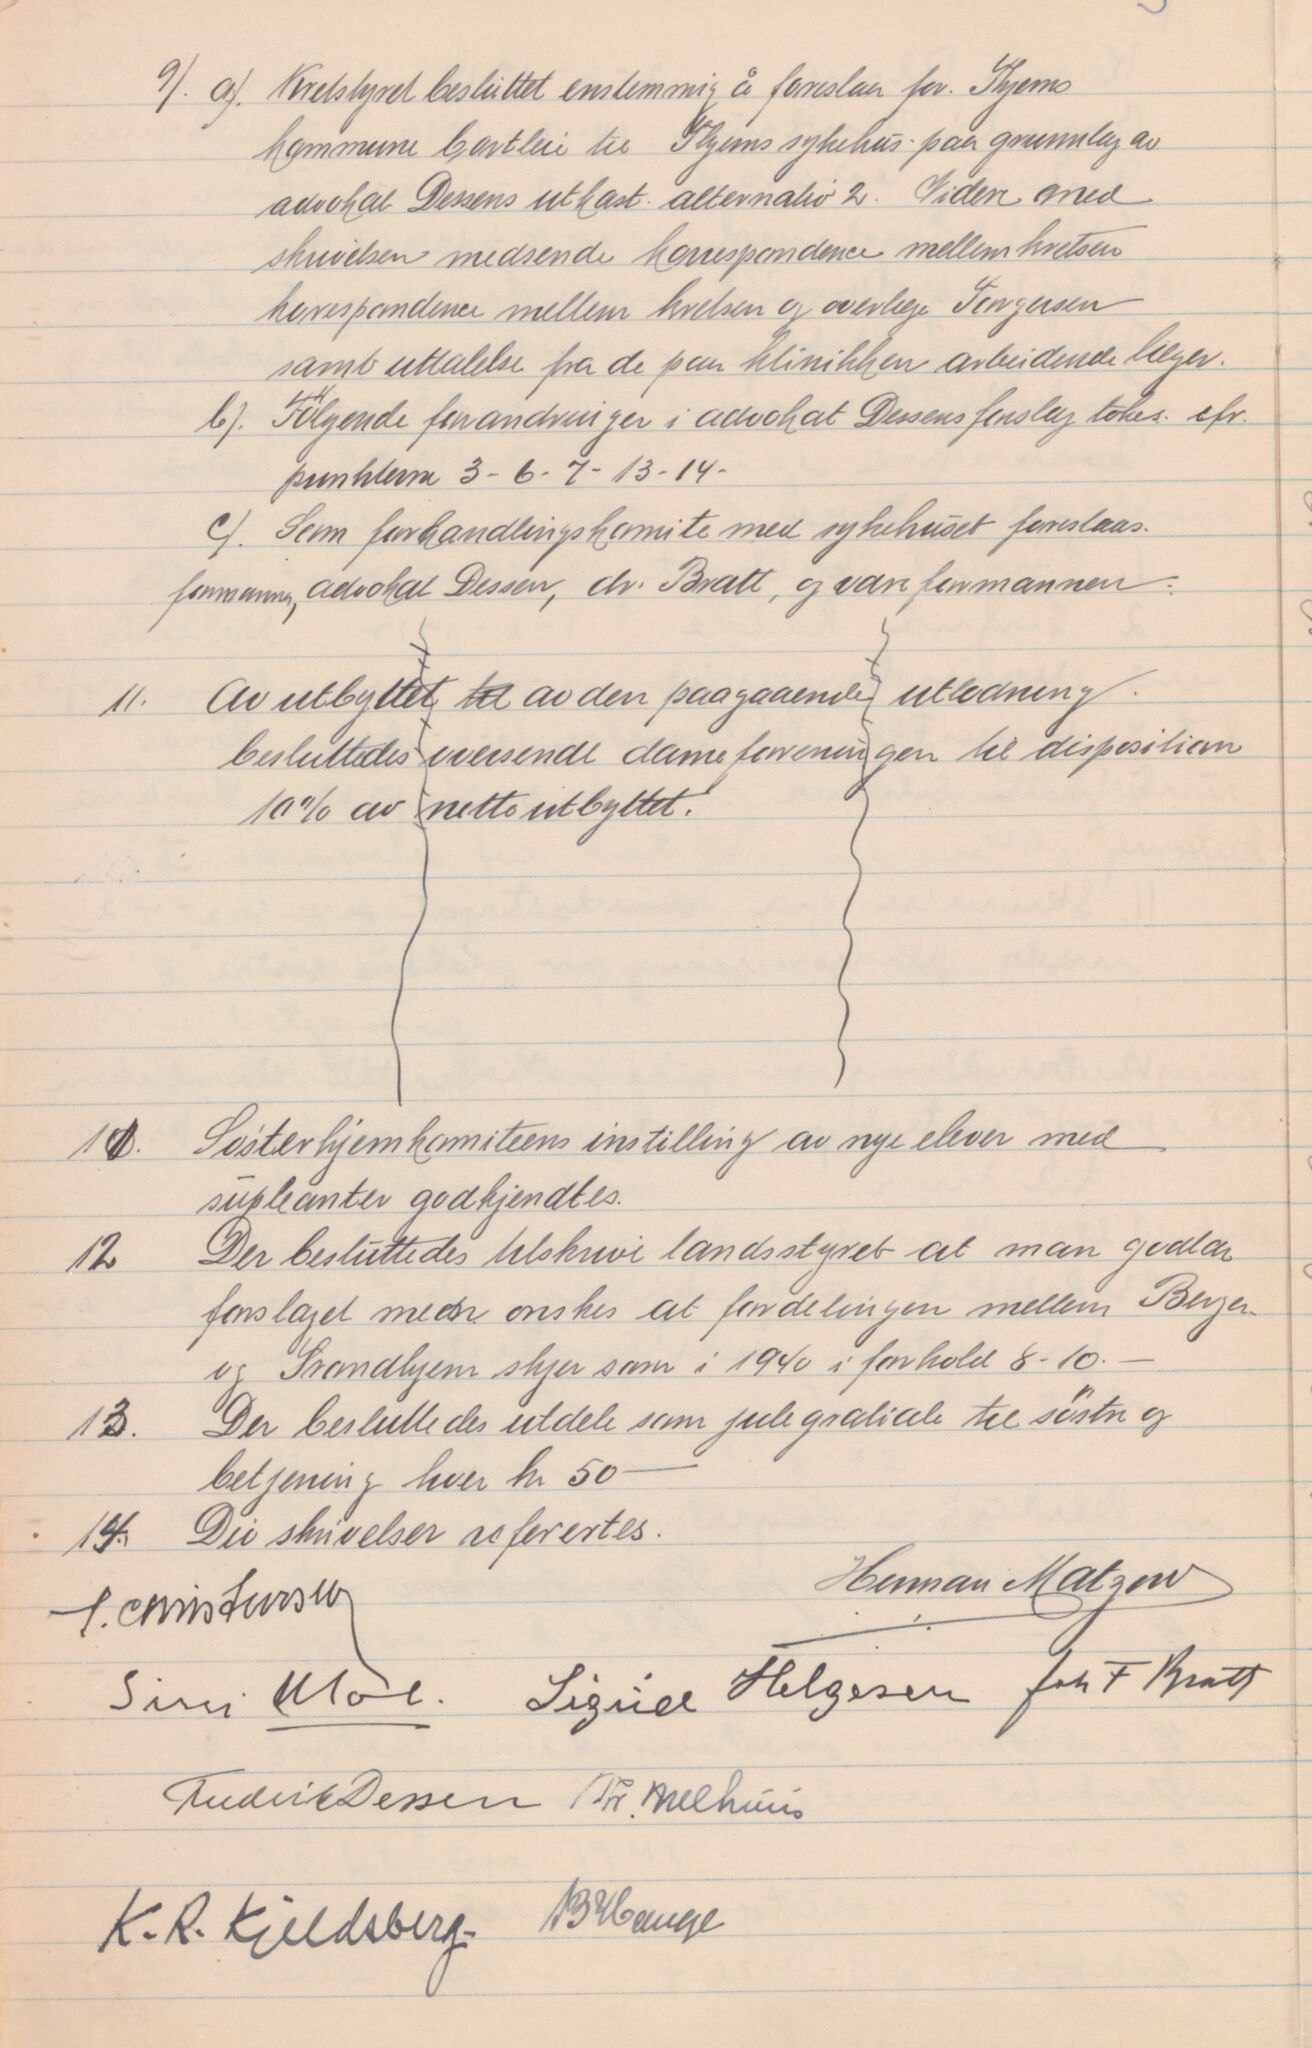 9). a). Kretsstyret besluttet enstemmig å foreslaa for Thjems
kommune bortleie til Thjems sykehus paa grunnlag av
advokat Dessens utkast. alternativ 2. Videre med
skrivelsen medsende korrespondence mellem kretsen
korespondence mellem kretsen og overlege Torgersen
samt uttalelse fra de paa klinikken arbeidende læger.
b). Følgende forandringer i advokat Dessens forslag tokes. cfr.
punkterne 3 - 6 - 7 - 13 - 14 -
c). Som forhandlingskomite med sykehuset foreslaas.
formannen, advokat Dessen, dr. Bratt, og vare formannen.
11. Av utbyttet til av den paagaaende utlodning.
besluttedes oversendt dameforeningen til disposition
10% av netto utbyttet.
10. Søsterhjemkomiteens instilling av nye elever med
supleanter godkjendtes.
12 Der besluttedes tilskrive landsstyret at man godtar
forslaget men ønskes at fordelingen mellem Bergen
og Trondhjem skjer som i 1940 i forhold 8 - 10. —
13. Der besluttedes utdele som julegratiale til søstre og
betjening hver kr 50 —
14. Div skrivelser refertes.
Herman Matzow
Sigurd Helgesen Joh F Bratt
Fredrik Dessen
K. R. Kjeldsberg. B Hauge